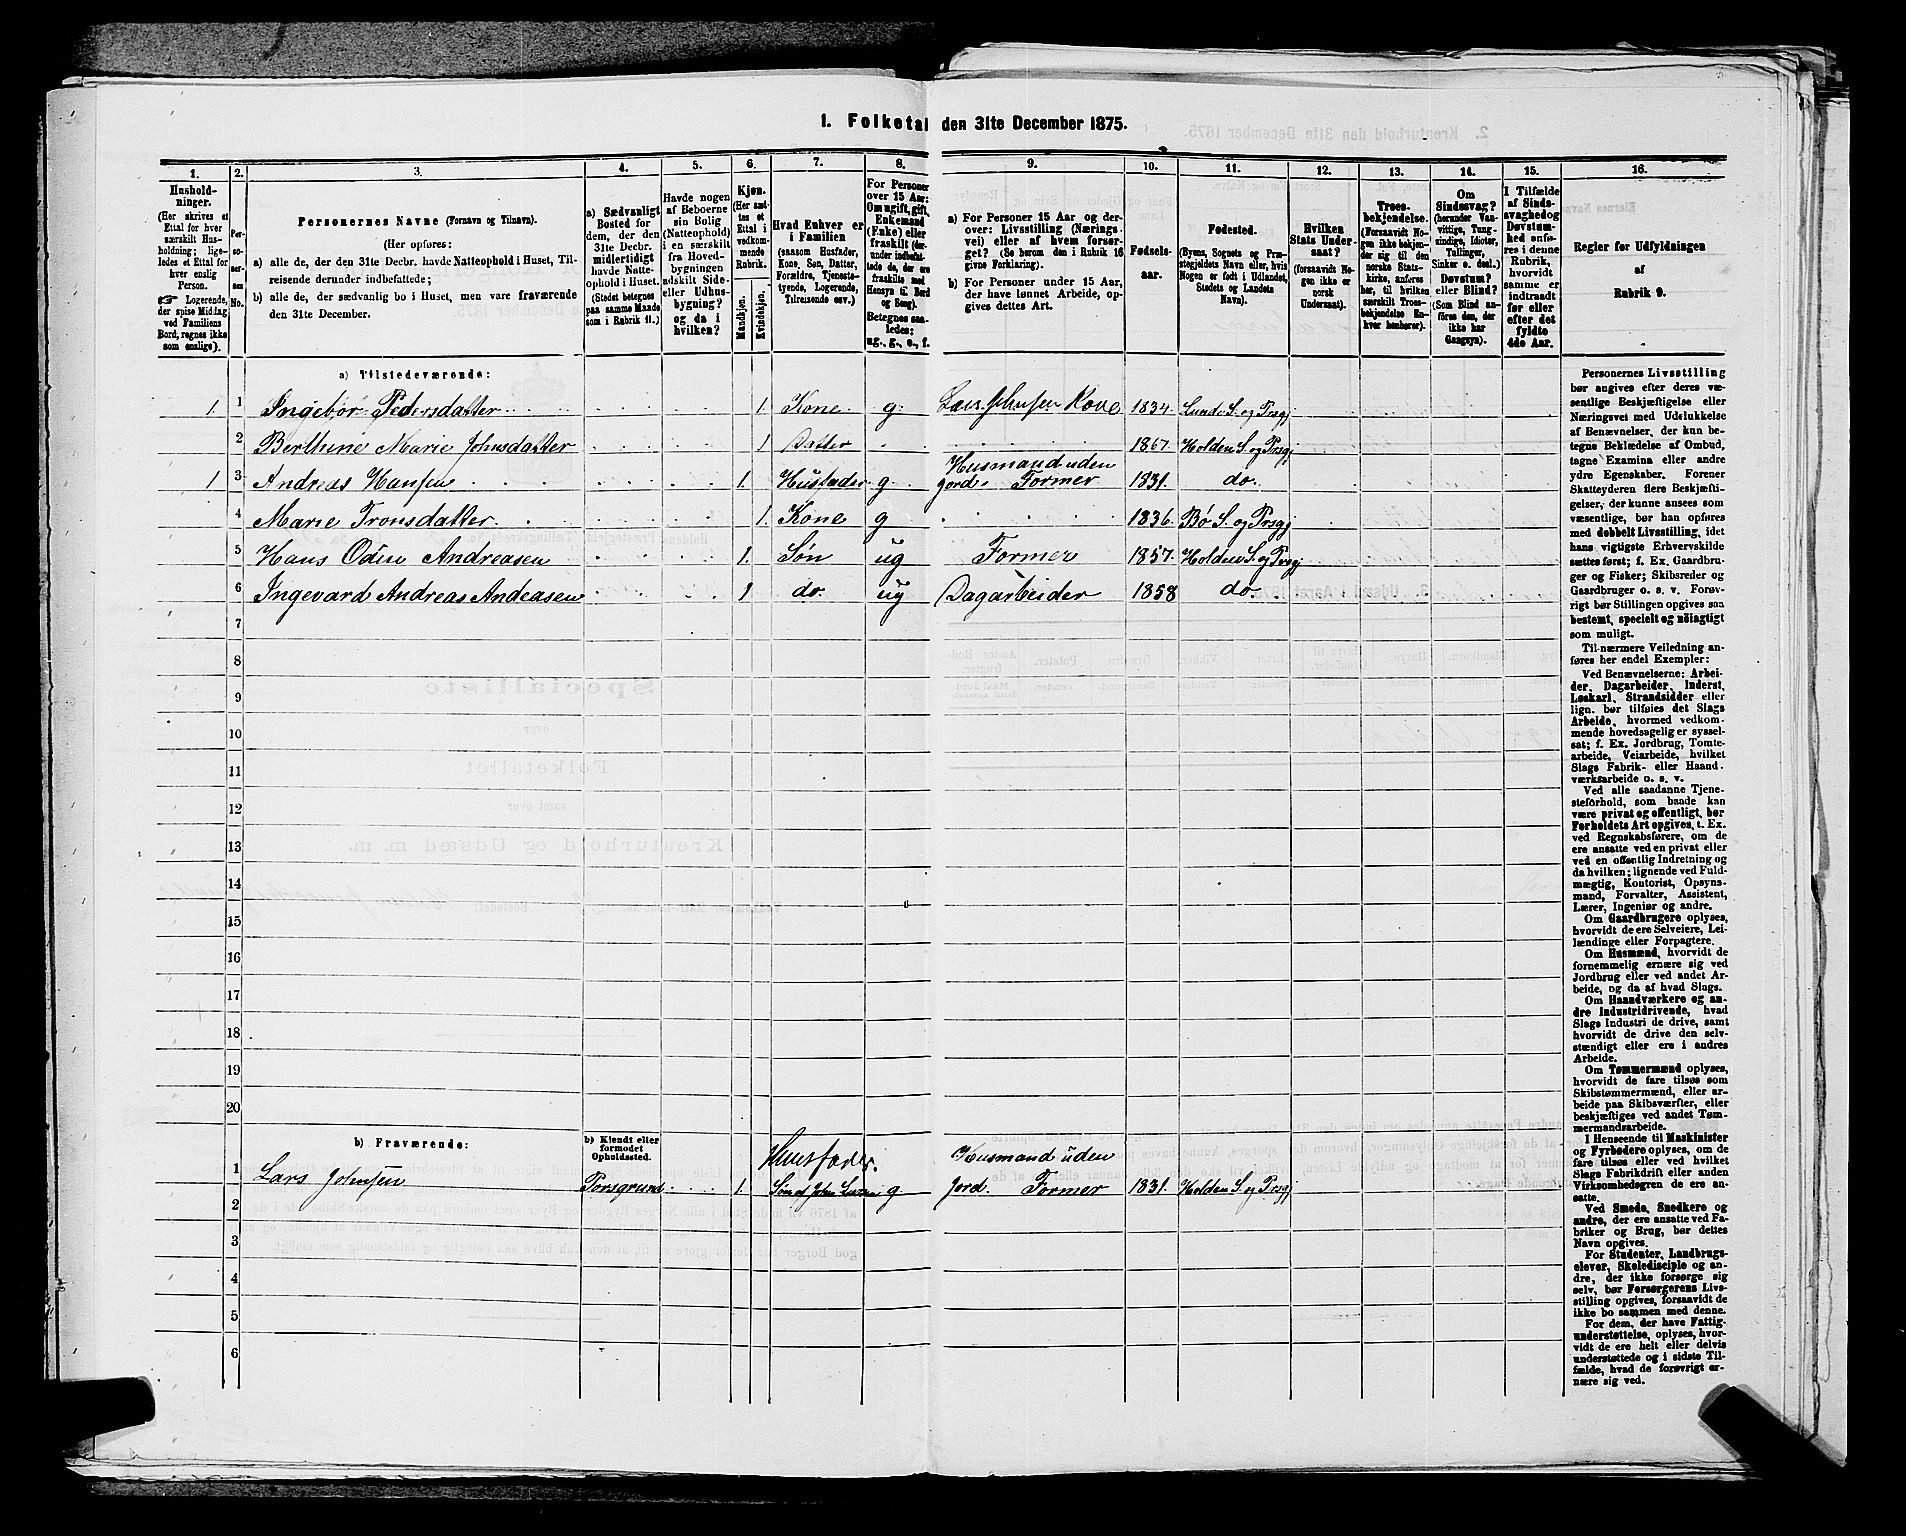 1. Folketal den 31te December 1875.
1.
2.
3.
4.
5.
6.
7.
8.
9.
10.
11.
12.
13.
14.
15.
16.
Husholdninger.
(Her skrives et Ettal for hver særskilt Husholdning; ligeledes et Ettal for hver enslig Person.
☞ Logerende, der spise Middag ved Familiens Bord, regnes ikke som enslige).
Personernes No.
Personernes Navne (Fornavn og Tilnavn).
(Her opføres:
a) alle de, der den 31te Decbr. havde Natteophold i Huset, Tilreisende derunder indbefattede;
b) alle de, der sædvanlig bo i Huset, men vare fraværende den 31te December.
a) Sædvanligt Bosted for dem, der den 31te Decbr. midlertidigt havde Natteophold i Huset.
(Stedet betegnes paa samme Maade som i Rubrik 11.)
Havde nogen af Beboerne sin Bolig (Natteophold) i en særskilt fra Hovedbygningen adskilt Side- eller Udhusbygning? og da i hvilken?
Kjøn.
(Her sættes et Ettal i vedkommende Rubrik.
Mandkjøn.
Kvindekjøn.
Hvad Enhver er i Familien
(saasom Husfader, Kone, Søn, Datter, Forældre, Tjenestetyende, Logerende, Tilreisende osv.)
For Personer over 15 Aar: Om ugift, gift, Enkemand (Enke) eller fraskilt (derunder indbefattede de, der ere fraskilte med Hensyn til Bord og Seng).
Betegnes saaledes: ug., g., e., f.
a) For Personer 15 Aar og derover: Livsstilling (Næringsvei) eller af hvem forsørget? (Se herom den i Rubrik 16 givne Forklaring).
b) For Personer under 15 Aar, der have lønnet Arbeide, opgives dettes Art.
Fødselsaar.
Fødested.
(Byens, Sognets og Præstegjeldets Navn eller, hvis Nogen er født i Udlandet, Stedets og Landets Navn).
Hvilken Stats Undersaat?
(forsaavidt Nogen ikke er norsk Undersaat).
Troesbekjendelse.
(Forsaavidt Nogen ikke bekjender sig til den norske Statskirke, anføres her, til hvilken særskilt Troesbekjendelse Enhver henhører).
Om Sindssvag? (herunder Vanvittige, Tungsindige, Idioter, Tullinger, Sinker o. desl.) Døvstum? eller Blind?
(Som Blind anføres den, der ikke har Gangsyn).
I Tilfælde af Sindssvaghed og Døvstumhed anføres i denne Rubrik, hvorvidt samme er indtraadt før eller efter det fyldte 4de Aar.
Regler for Udfyldningen
af
Rubrik 9.
a) Tilstedeværende:
1. 1 Ingebor Pedersdatter 1. Kone. g. Lars Johnsen Kone 1834. Lunde S. og Prsgj
2 Berthine Marie Johnsdatter 1 Datter 1867. Holden S. og Prsgj
Husmand uden
1 3 Andreas Hansen 1. Husfader g jord. Former 1831. do.
4 Marie Tronsdatter. 1. Kone g 1836. Bø S. og Prsgj
5 Hans Oden Andreasen 1. Søn ug Former 1857. Holden S. og Prsgj
6 Ingevard Andreas Andeasen 1 do. ug Dagarbeider 1858 do.
7
8
9
10
11
12
13
14
15
16
17
18
19
20
b) Fraværende:
b) Kjendt eller formodet Opholdssted.
Huusfader. Husmand uden
1 Lars Johnsen Porsgrund 1. Søn af John Larsen g jord. Former 1831. Holden S. og Prsgj
2
3
4
5
6
Personernes Livsstilling
bør angives efter deres væ-
sentlige Beskjæftigelse eller
Næringsvei med Udelukkelse
af Benævnelser, der kun be-
tegne Beklædelse af Ombud,
tagne Examina eller andre
ydre Egenskaber. Forener
Skatteyderen flere Beskjæfti-
gelser, der kunne ansees som
væsentlige, bør han opføres
med dobbelt Livsstilling, idet
hans vigtigste Erhvervskilde
sættes først; f. Ex. Gaardbru-
ger og Fisker; Skibsreder og
Gaardbruger o. s. v. Forøv-
rigt bør Stillingen opgives saa
bestemt, specielt og nöiagtigt
som muligt.
Til nærmere Veiledning an-
føres her endel Exempler:
Ved Benævnelserne: Arbei-
der, Dagarbeider, Inderst,
Løskarl, Strandsidder eller
lign. bør tilføies det Slags
Arbeide, hvormed vedkom-
mende hovedsagelig er syssel-
sat; f. Ex. Jordbrug, Tomte-
arbeide, Veiarbeide, hvilket
Slags Fabrik- eller Haand-
værksarbeide o. s. v.
Ved alle saadanne Tjene-
steforhold, som baade kan
være privat og offentligt, bør
Forholdets Art opgives, t. Ex.
ved Regnskabsførere, om de
ere ansatte ved en privat eller
ved en offentlig Indretning og
da hvilken; lignende ved Fuld-
mægtig, Kontorist, Opsyns-
mand, Forvalter, Assistent,
Lærer, Ingeniør og andre.
Om Gaardbrugere oplyses,
hvorvidt de ere Selveiere, Lei-
lændinge eller Forpagtere.
Om Husmænd, hvorvidt de
fornemmelig ernære sig ved
Jordbrug eller ved andet Ar-
beide, og da af hvad Slags.
Om Haandværkere og an-
dre Industridrivende, hvad
Slags Industri de drive, samt
hvorvidt de drive den selv-
stændigt eller ere i andres
Arbeide.
Om Tømmermænd oplyses,
hvorvidt de fare tilsøs som
Skibstømmermænd, eller ar-
beide paa Skibsværfter, eller
beskjæftiges ved andet Tøm-
mermandsarbeide.
I Henseende til Maskinister
og Fyrbødere oplyses, om de
fare tilsøs eller ved hvilket
Slags Fabrikdrift eller anden
Virksomhedsgren de ere an-
satte.
Ved Smede, Snedkere og
andre, der ere ansatte ved Fa-
briker og Brug, bør dettes
Navn opgives.
For Studenter, Landbrugs-
elever, Skoledisciple og an-
dre, der ikke forsørge sig
selv, bør Forsørgerens Livs-
stilling opgives, forsaavidt de
ikke bo sammen med denne.
For dem, der have Fattig-
understøttelse, oplyses, hvor-
vidt de ere helt eller delvis
understøttede og i sidste Til-
fælde, hvad de forøvrigt er-
nære sig ved.